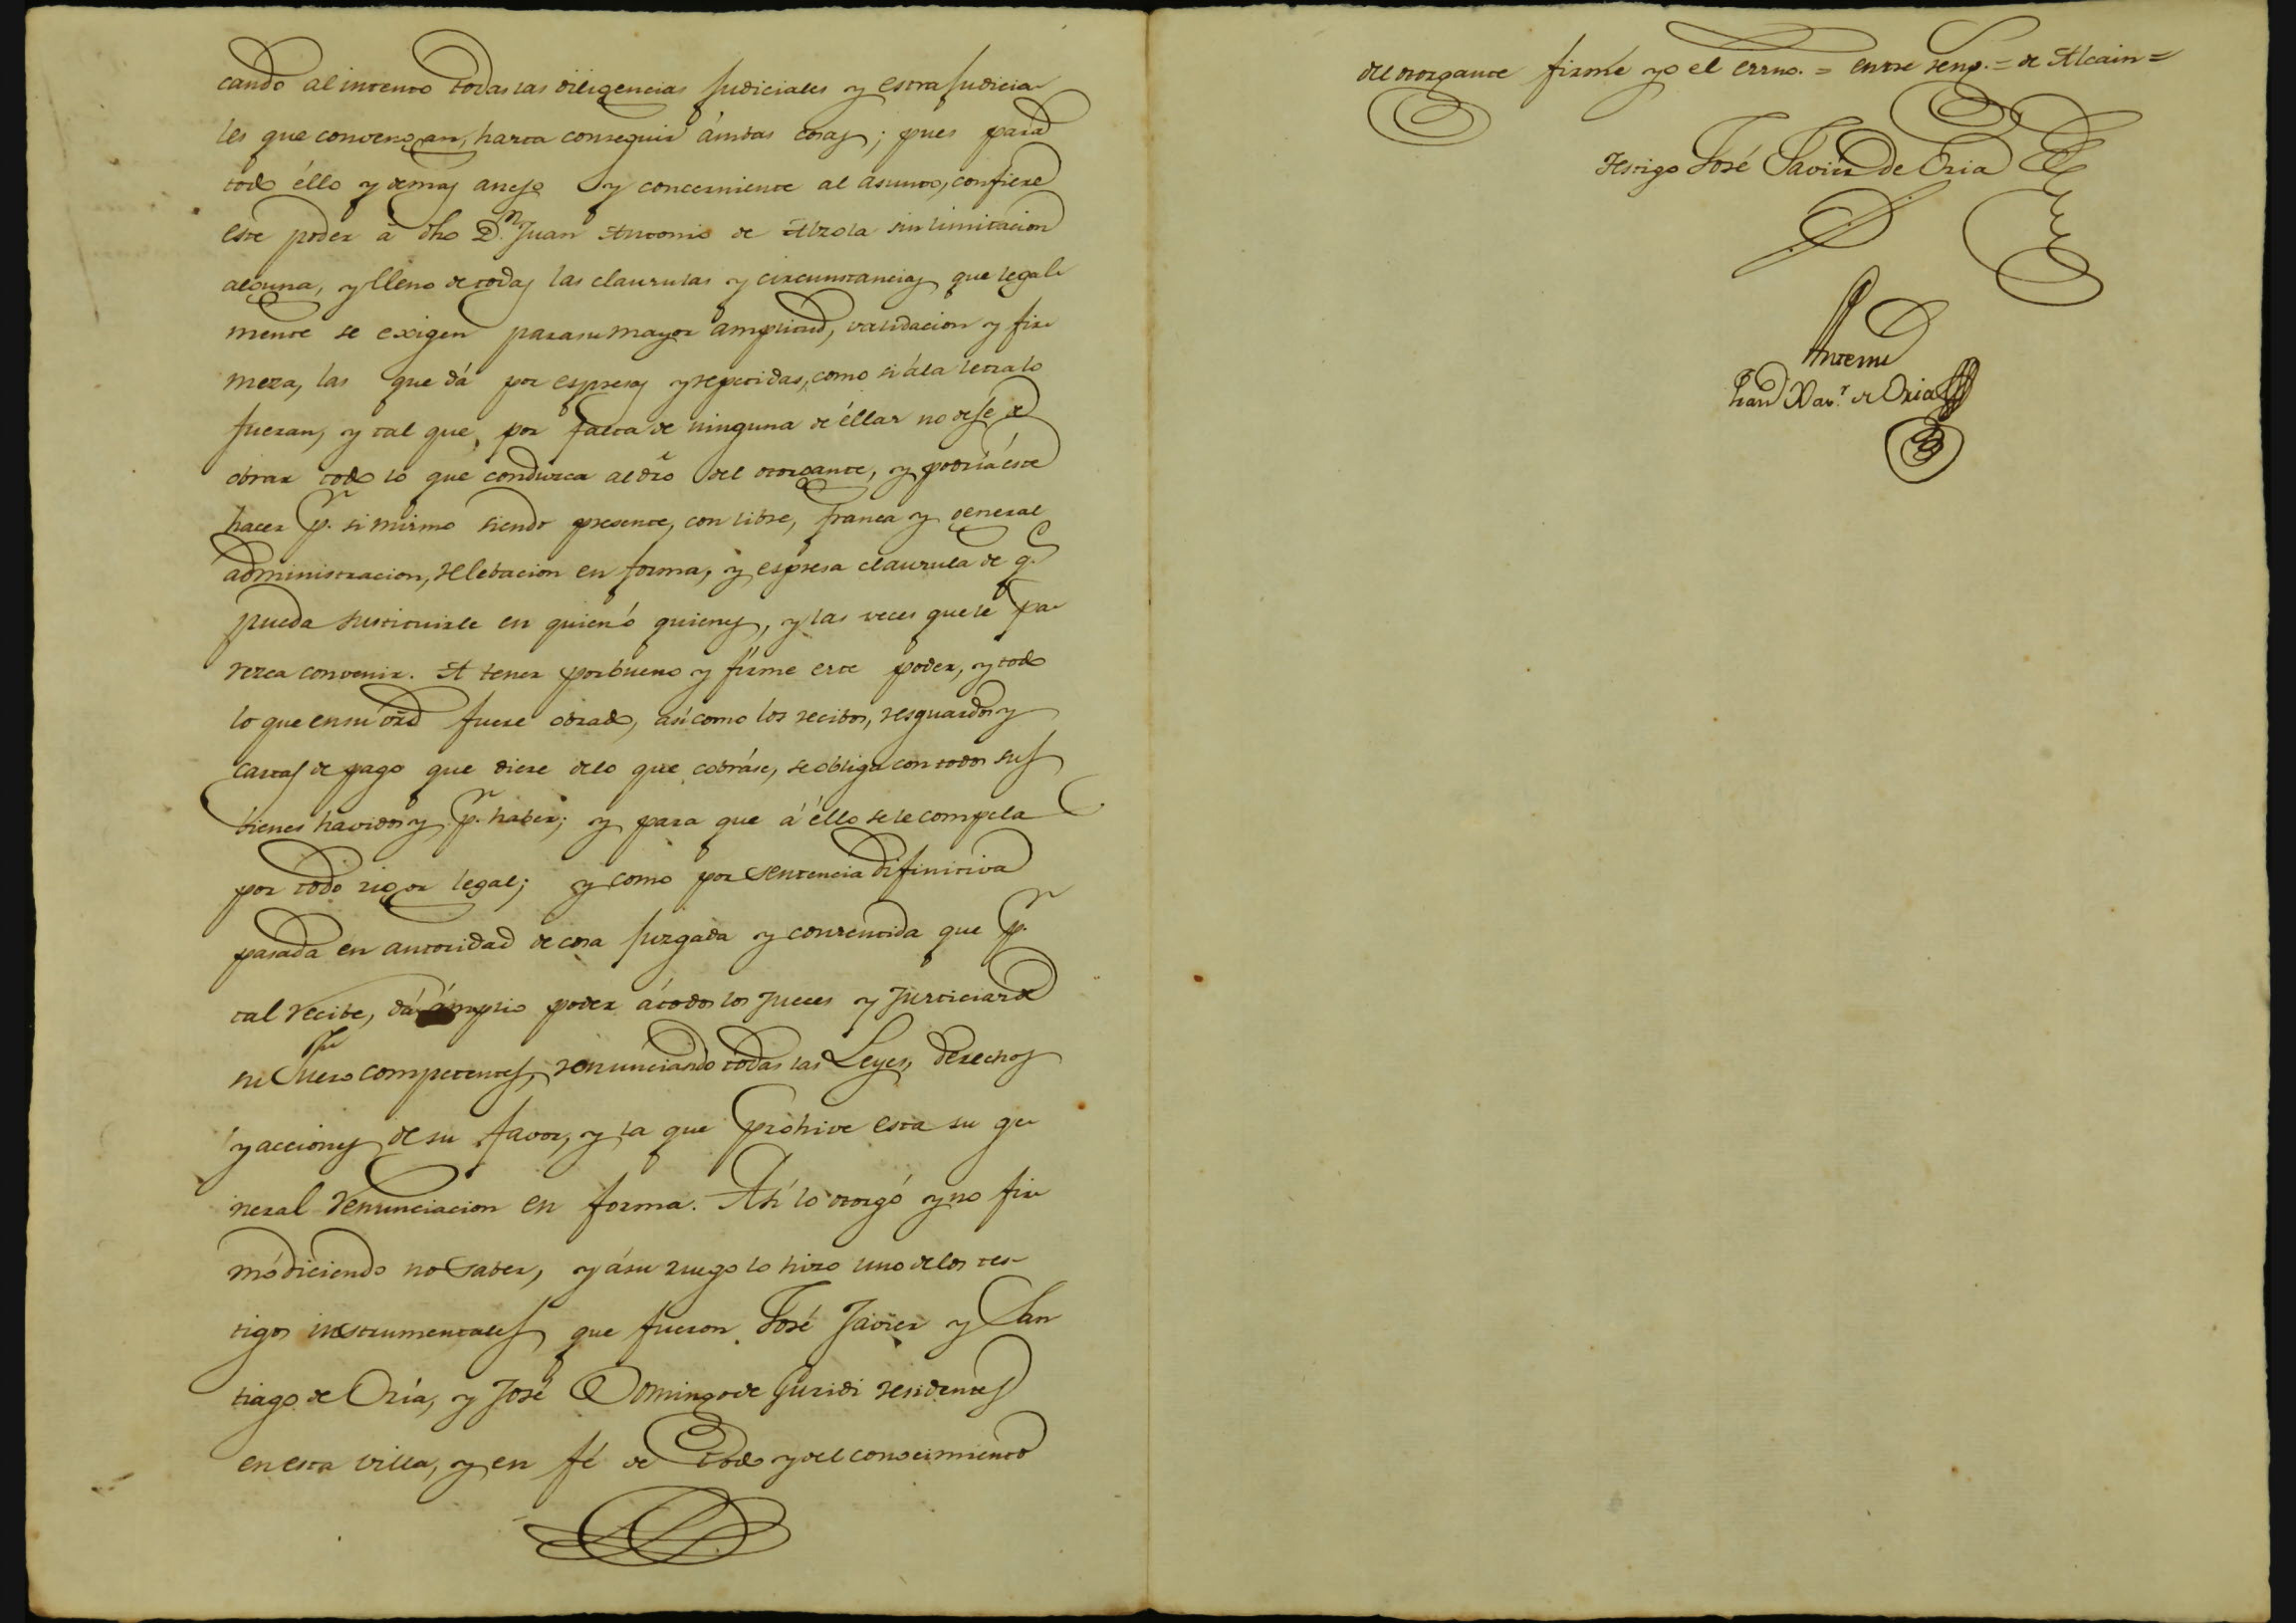 cando al intento todas las diligencias judiciales y estrajudicia-
les que convengan, hasta conseguir ámbas cosas; pues para
todo éllo y demas anejo y concerniente al asunto, confiere
este poder á dho D.n Juan Antonio de Alzola sin limitacion
alguna, y lleno de todas las clausulas y circunstancias que legal-
mente se exigen para su mayor amplitud, validacion y fir-
meza, las que dá por espresas y repetidas, como si á la letra lo
fueran, y tal que por falta de ninguna de éllas no deje de
obrar todo lo que conduzca al dro del otorgante, y podría éste
hacer p.r si mismo siendo presente, con libre, franca y general
administracion, relebacion en forma, y espresa clausula de q.e
pueda sustituirle en quien ó quienes, y las veces que le pa-
rezca convenir. A tener por bueno y firme este poder, y todo
lo que en su ord fuere obrado, así como los recibos, resguardos y
cartas de pago que diere de lo que cobráse, se obliga con todos sus
bienes havidos y p.r haber; y para que á éllo se le compela
por todo rigor legal; y como por sentencia difinitiva
pasada en autoridad de cosa juzgada y consentida que p.r
tal recibe, dá ámplio poder á todos los Jueces y Justicias de
su fuero competentes, renunciando todas las Leyes, derechos
y acciones de su favor, y la que prohive esta su ge-
neral renunciacion en forma. Así lo otorgó y no fir-
mó diciendo no saber, y á su ruego lo hizo uno de los tes-
tigos instrumentales que fueron José Javier y San-
tiago de Oria, y José Domingo de Guridi residentes
en esta villa, y en fé de todo y del conocimiento
del otorgante firmé yo el essno. = entre reng.s = de Alcain =
Testigo José Javier de Oria
Antemi
Juan Xav.r de Oria